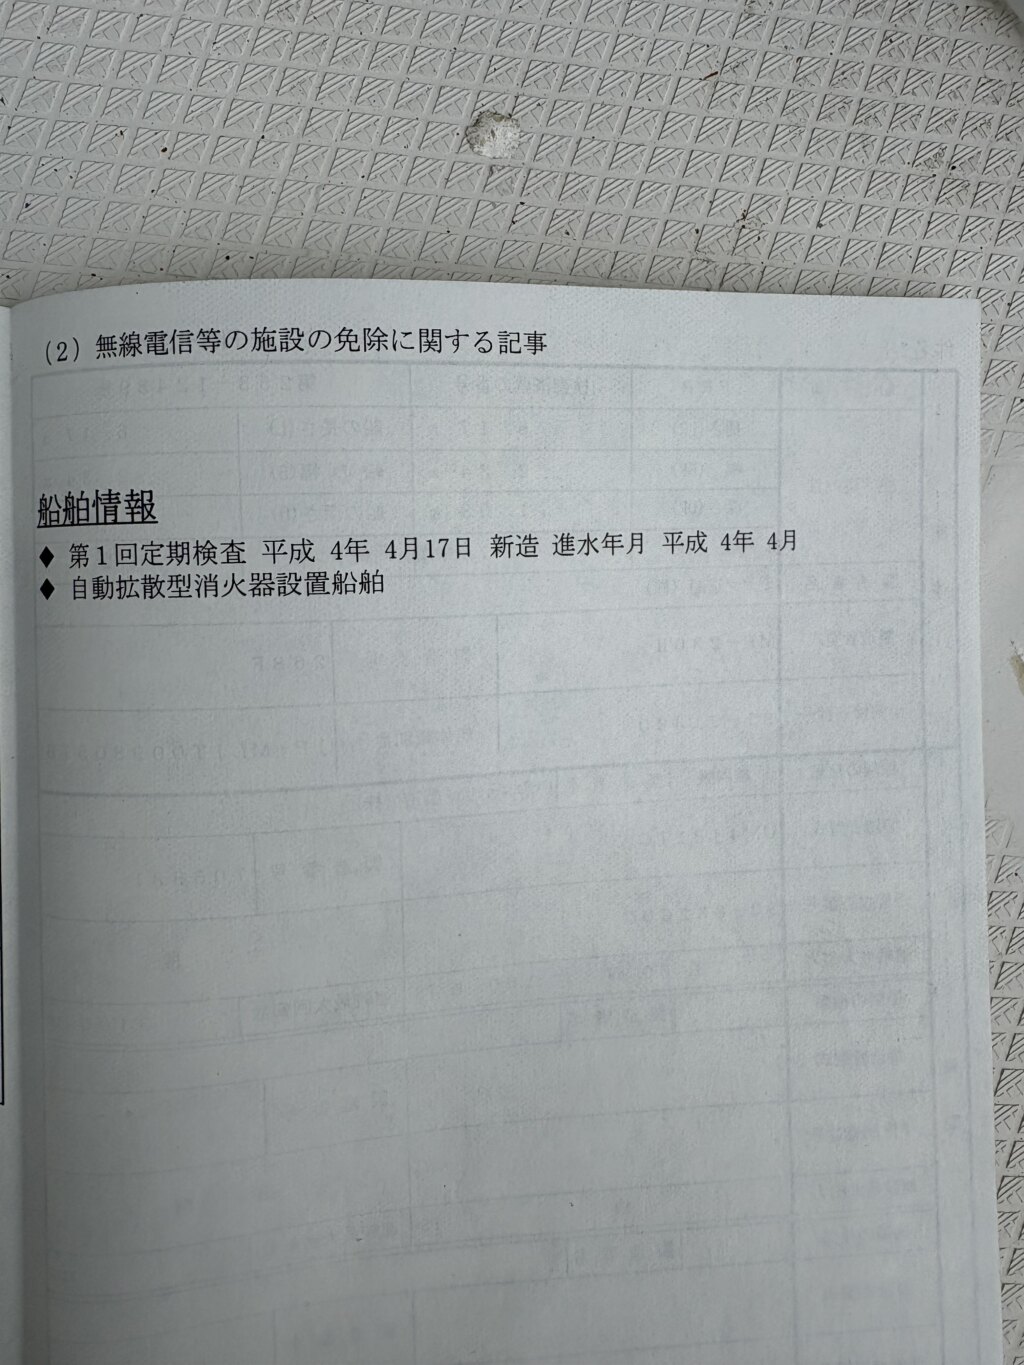 (2) 無線電信等の施設の免除に関する記事
船舶情報
◆ 第1回定期検査 平成 4年 4月17日 新造 進水年月 平成 4年 4月
◆ 自動拡散型消火器設置船舶